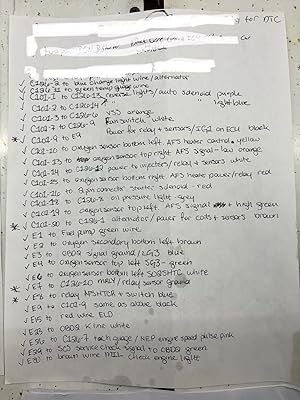 for DTC
C126-2 to blue charge light wire/alternator
C126-12 to green temp gauge wire
C101-1 to C126-13 reverse lights/auto solenoid purple
C101-2 to C126-14 " " light blue
C101-3 to C126-6 VSS orange
C101-7 to C126-9 Fan switch white
C101-9 to E9 Power for relay + sensors/IG1 on ECU black
C101-10 to oxygen sensor bottom left AFS heater control + yellow
C101-13 to oxygen sensor top right AFS signal - low orange
C101-14 to C126-12 power to injectors/relay + sensors white
C101-15 to oxygen sensor bottom right AFS heater power/relay red
C101-16 to 2 pin connector starter solenoid - red
C101-18 to C126- oil pressure light - grey
C101-19 to oxygen sensor top left AFS signal + high green
C101-20 to C126-1 alternator/power for cats + sensors brown
E1 to Fuel pump green wire
E2 to oxygen secondary bottom left brown
E3 to OBD2 signal ground/SG3 blue
E4 to oxygen sensor top left SG3 - green
E6 to oxygen sensor bottom left SO2SHTC white
E7 to C126-10 MRLY/relay sensor ground
E8 to relay AFSHTCR + switch blue
E9 to C101-9 same as above black
E15 to red wire ELD
E23 to OBD2 K line white
E26 to C126-7 tach guage/NEP engine speed pulse pink
E29 to SCS service check signal to OBD2 green
E31 to brown wire MIL check engine light